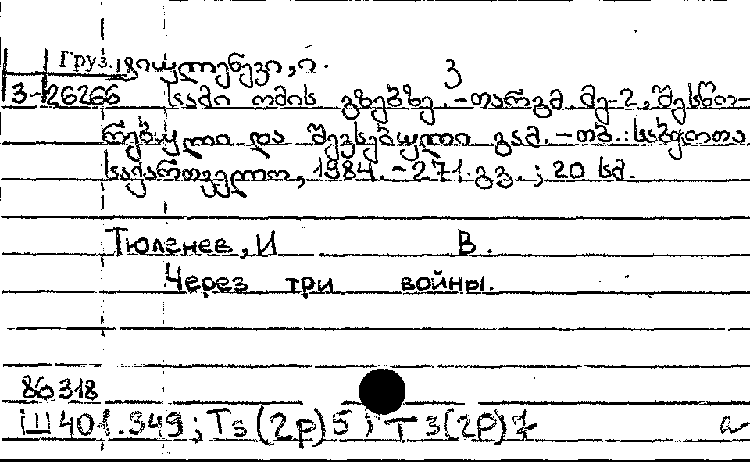 Груз. ტიულენევი, ი. ვ
3-26266 სამი ომის გზებზე. -თარგმ. მე-2, შესწო-
რებული და შევსებული გამ. -თბ.: საბჭოთა
საქართველო, 1984. -271 გვ. ; 20 სმ.
Тюленев, И В.
Через три войны.
86318
Ш401.349; Т3(2р)5; Т3(2р)7